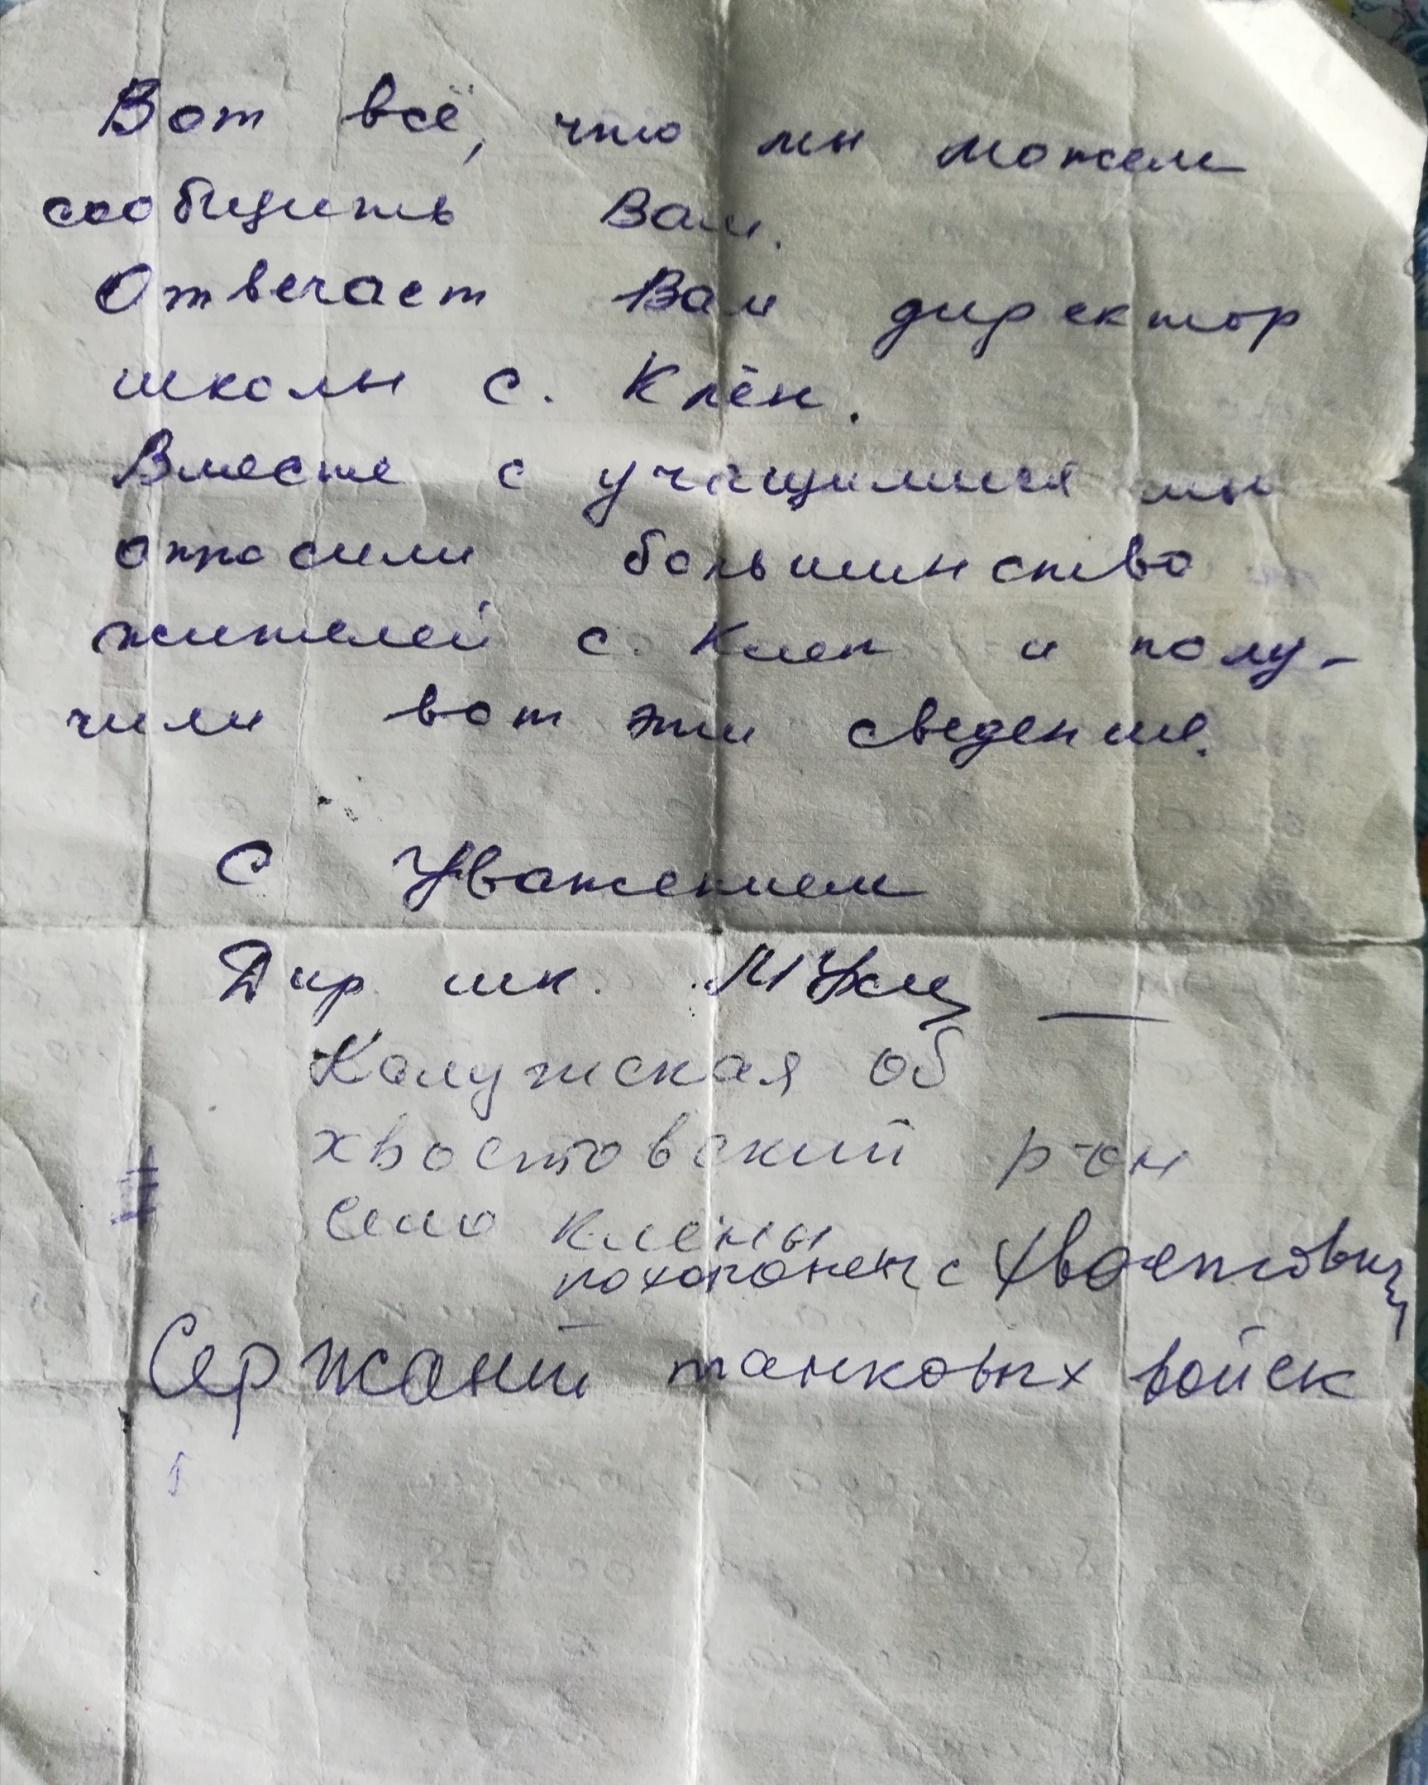 Вот всё, что мы можем
сообщить Вам.
Отвечает Вам директор
школы с. Клён.
Вместе с учащимися мы
опросили большинство
жителей с. Клен и полу-
чили вот эти сведения.
С Уважением
Дир шк.
Калужская об
хвостовский р-он
село Клёны
похоронен с Хвастовичи
Сержант танковых войск